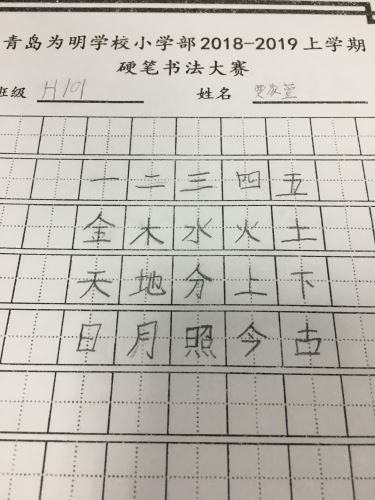 青岛为明学校小学部2018-2019上学期
硬笔书法大赛
班级 H101 姓名
一二三四五
金木水火土
天地分上下
日月照今古